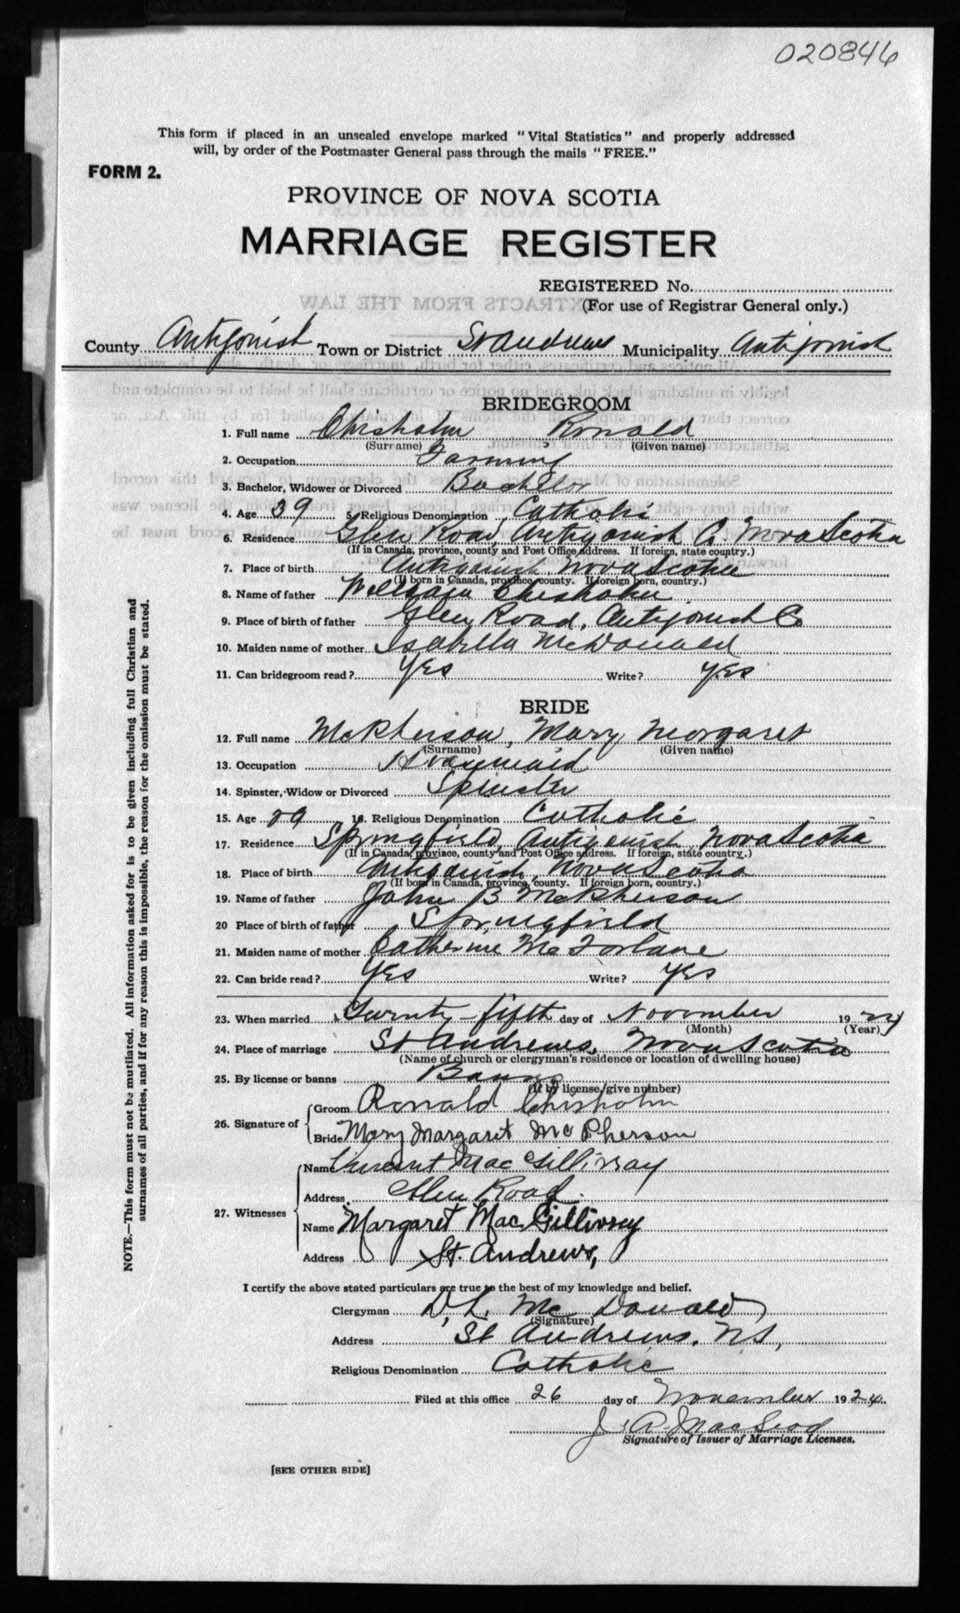 020846
This form if placed in an unsealed envelope marked "Vital Statistics" and properly addressed
will, by order of the Postmaster General pass through the mails "FREE."
FORM 2.
PROVINCE OF NOVA SCOTIA
MARRIAGE REGISTER
REGISTERED No.
(For use of Registrar General only.)
County Antigonish Town or District St Andrews Municipality Antigonish
BRIDEGROOM
1. Full name Chisholm, Ronald
(Surname) (Given name)
2. Occupation Farming
3. Bachelor, Widower or Divorced Bachelor
4. Age 39 5. Religious Denomination Catholic
6. Residence Glen Road, Antigonish Co. Nova Scotia
(If in Canada, province, county and Post Office address. If foreign, state country.)
7. Place of birth Antigonish Nova Scotia
(If born in Canada, province, county. If foreign born, country.)
8. Name of father William Chisholm
9. Place of birth of father Glen Road, Antigonish Co
10. Maiden name of mother Isabella McDonald
11. Can bridegroom read? Yes Write? Yes
BRIDE
12. Full name McPherson, Mary Margaret
(Surname) (Given name)
13. Occupation Housemaid
14. Spinster, Widow or Divorced Spinster
15. Age 29 16. Religious Denomination Catholic
17. Residence Springfield, Antigonish, Nova Scotia
(If in Canada, province, county and Post Office address. If foreign, state country.)
18. Place of birth Antigonish, Nova Scotia
(If born in Canada, province, county. If foreign born, country.)
19. Name of father John B McPherson
20 Place of birth of father Springfield
21. Maiden name of mother Catherine McFarlane
22. Can bride read? Yes Write? Yes
23. When married Twenty-fifth day of November 1924
(Month) (Year)
24. Place of marriage St Andrews, Nova Scotia
(Name of church or clergyman's residence or location of dwelling house)
25. By license or banns Banns
(If by license, give number)
26. Signature of Groom Ronald Chisholm
Bride Mary Margaret McPherson
27. Witnesses Name Vincent MacGillivray
Address Glen Road.
Name Margaret MacGillivray
Address St. Andrews,
I certify the above stated particulars are true to the best of my knowledge and belief.
Clergyman D. L. McDonald
(Signature)
Address St Andrews, N.S,
Religious Denomination Catholic
Filed at this office 26 day of November 1924.
J. A. MacLeod
Signature of Issuer of Marriage Licenses.
[SEE OTHER SIDE]
NOTE.—This form must not be mutilated. All information asked for is to be given including full Christian and
surnames of all parties, and if for any reason this is impossible, the reason for the omission must be stated.